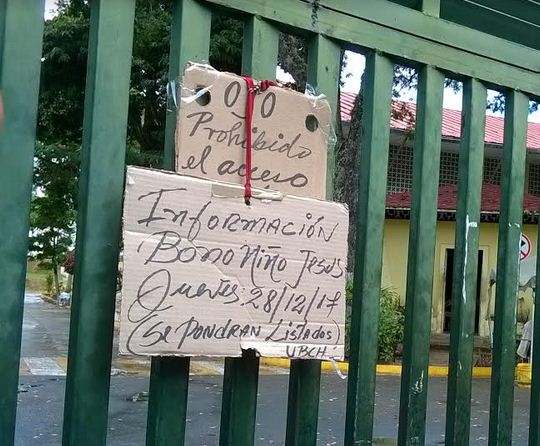 OJO
Prohibido
el acceso
Información
Bono Niño Jesús
Jueves: 28/12/17
(Se Pondran Listados)
UBCH